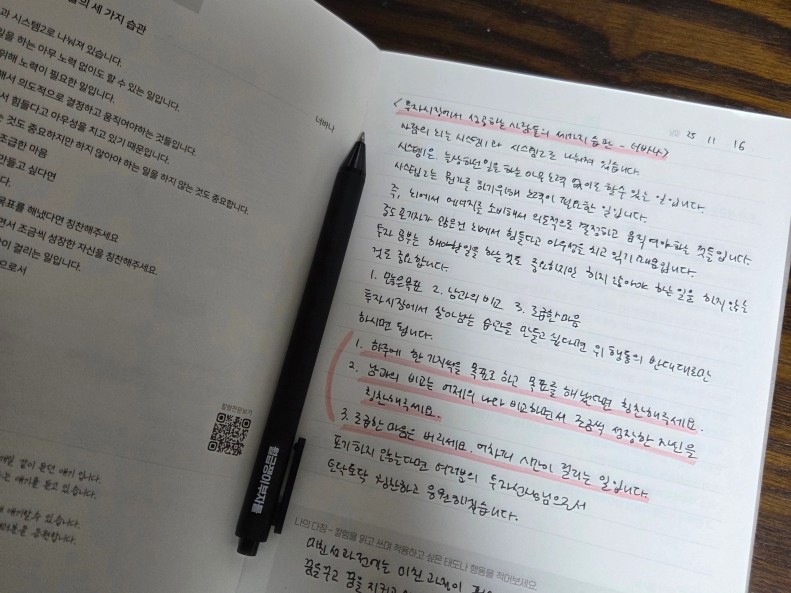 의 세 가지 습관
과 시스템2로 나눠져 있습니다.
일을 하는 아무 노력 없이도 할 수 있는 일입니다.
위해 노력이 필요한 일입니다.
해서 의도적으로 결정하고 움직여야하는 것들입니다.
서 힘들다고 아우성을 치고 있기 때문입니다.
것도 중요하지만 하지 않아야 하는 일을 하지 않는 것도 중요합니다.
조급한 마음
만들고 싶다면
다.
목표를 해냈다면 칭찬해주세요
면서 조금씩 성장한 자신을 칭찬해주세요
이 걸리는 일입니다.
으로서
너바나
칼럼전문보기
월급쟁이부자들
25 11 16
<투자시장에서 성공하는 사람들의 세가지 습관 - 너바나>
사람의 뇌는 시스템1과 시스템2로 나눠져 있습니다.
시스템1은 늘상하던일을 하는 아무노력 없이도 할수 있는 일입니다.
시스템2는 뭔가를 하기위해 노력이 필요한 일입니다.
즉, 뇌에서 에너지를 소비해서 의도적으로 결정하고 움직여야하는 것들입니다.
중도포기자가 많은건 뇌에서 힘들다고 아우성을 치고 있기 때문입니다.
투자 공부는 해야할일을 하는 것도 중요하지만 하지 않아야 하는 일을 하지 않는
것도 중요합니다.
1. 많은목표 2. 남과의 비교 3. 조급한마음
투자시장에서 살아남는 습관을 만들고 싶다면 위 행동의 반대대로만
하시면 됩니다.
1. 하루에 한 가지씩을 목표로 하고 목표를 해냈다면 칭찬해주세요.
2. 남과의 비교는 어제의 나와 비교하면서 조금씩 성장한 자신을
칭찬해주세요.
3. 조급한 마음은 버리세요. 어차피 시간이 걸리는 일입니다.
포기하지 않는다면 여러분의 투자선생님으로서
토닥토닥 칭찬하고 응원하겠습니다.
나의 다짐 - 칼럼을 읽고 쓰며 적용하고 싶은 태도나 행동을 적어보세요.